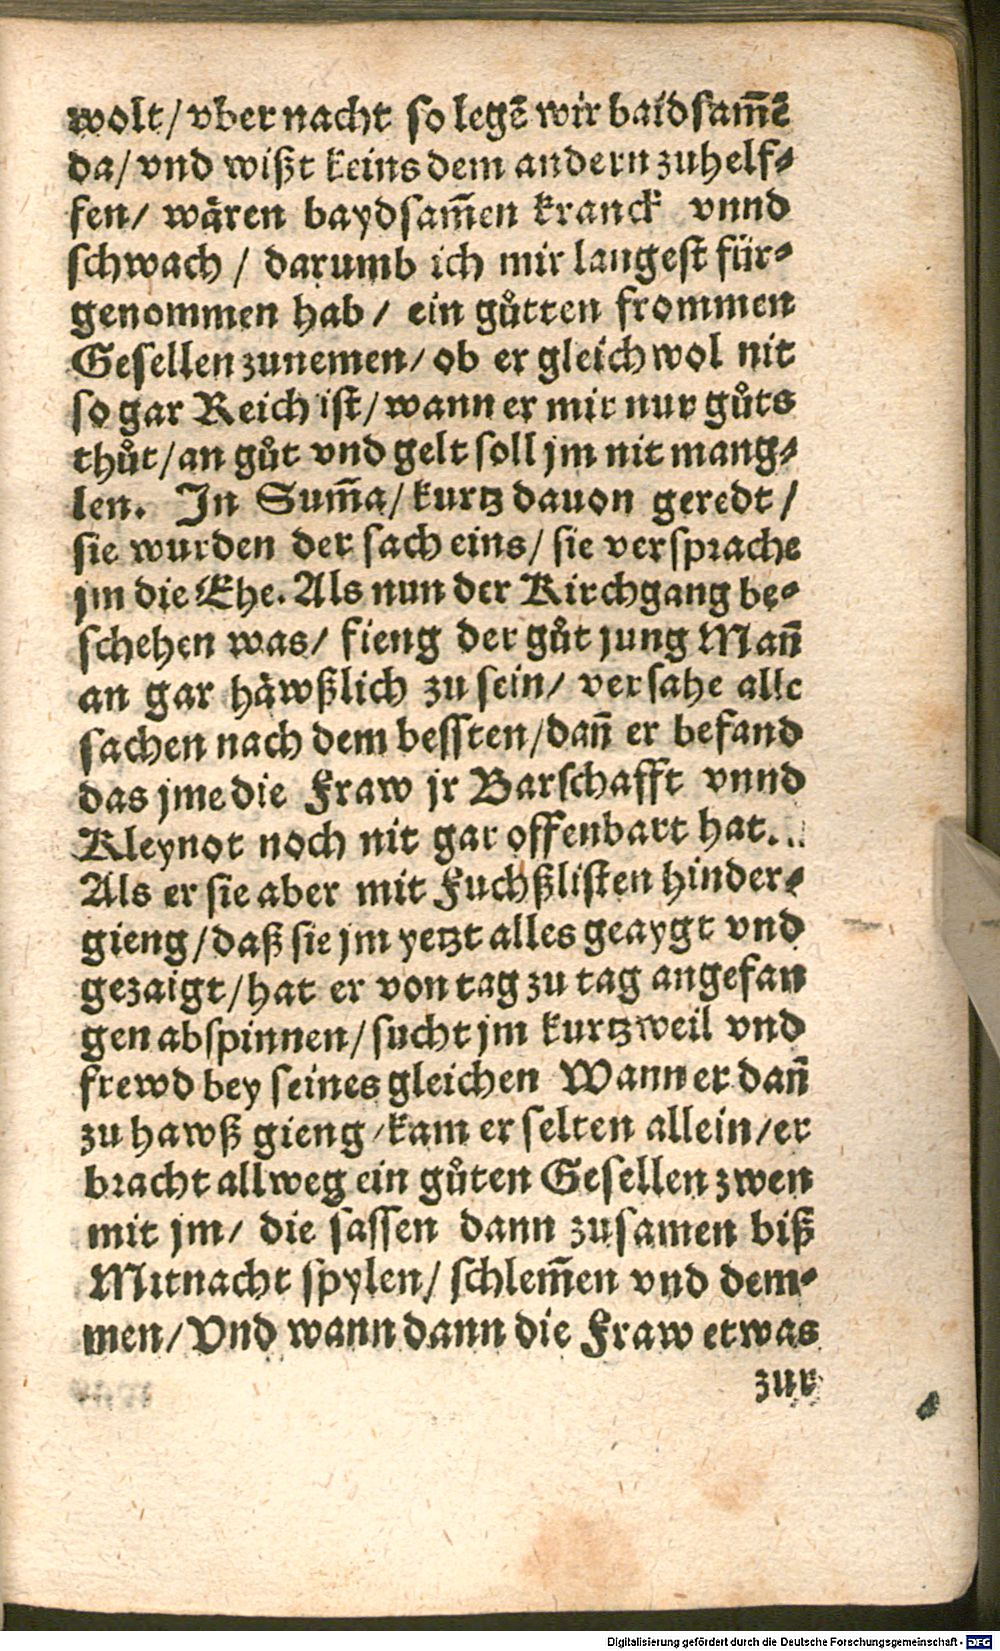 wolt/ vber nacht so legẽ wir baidsam̃ẽ
da/ vnd wißt keins dem andern zuhelf⸗
fen/ wären baydsam̃en kranck vnnd
schwach / darumb ich mir langest für⸗
genommen hab/ ein gůtten frommen
Gesellen zunemen/ ob er gleich wol nit
so gar Reich ist/ wann er mir nur gůts
thůt/ an gůt vnd gelt soll jm nit mang⸗
len. In Sum̃a/ kurtz dauon geredt/
sie wurden der sach eins/ sie versprache
jm die Ehe. Als nun der Kirchgang be⸗
schehen was/ fieng der gůt jung Mañ
an gar häwßlich zu sein/ versahe alle
sachen nach dem bessten/ dañ er befand
das jme die Fraw jr Barschafft vnnd
Kleynot noch nit gar offenbart hat.
Als er sie aber mit Fuchßlisten hinder⸗
gieng/ daß sie jm yetzt alles geaygt vnd
gezaigt/ hat er von tag zu tag angefan
gen abspinnen/ sucht jm kurtzweil vnd
frewd bey seines gleichen Wann er dañ
zu hawß gieng/ kam er selten allein/ er
bracht allweg ein gůten Gesellen zwen
mit jm/ die sassen dann zusamen biß
Mitnacht spylen/ schlem̃en vnd dem⸗
men/ Vnd wann dann die Fraw etwas
zur
Digitalisierung gefördert durch die Deutsche Forschungsgemeinschaft - DFG